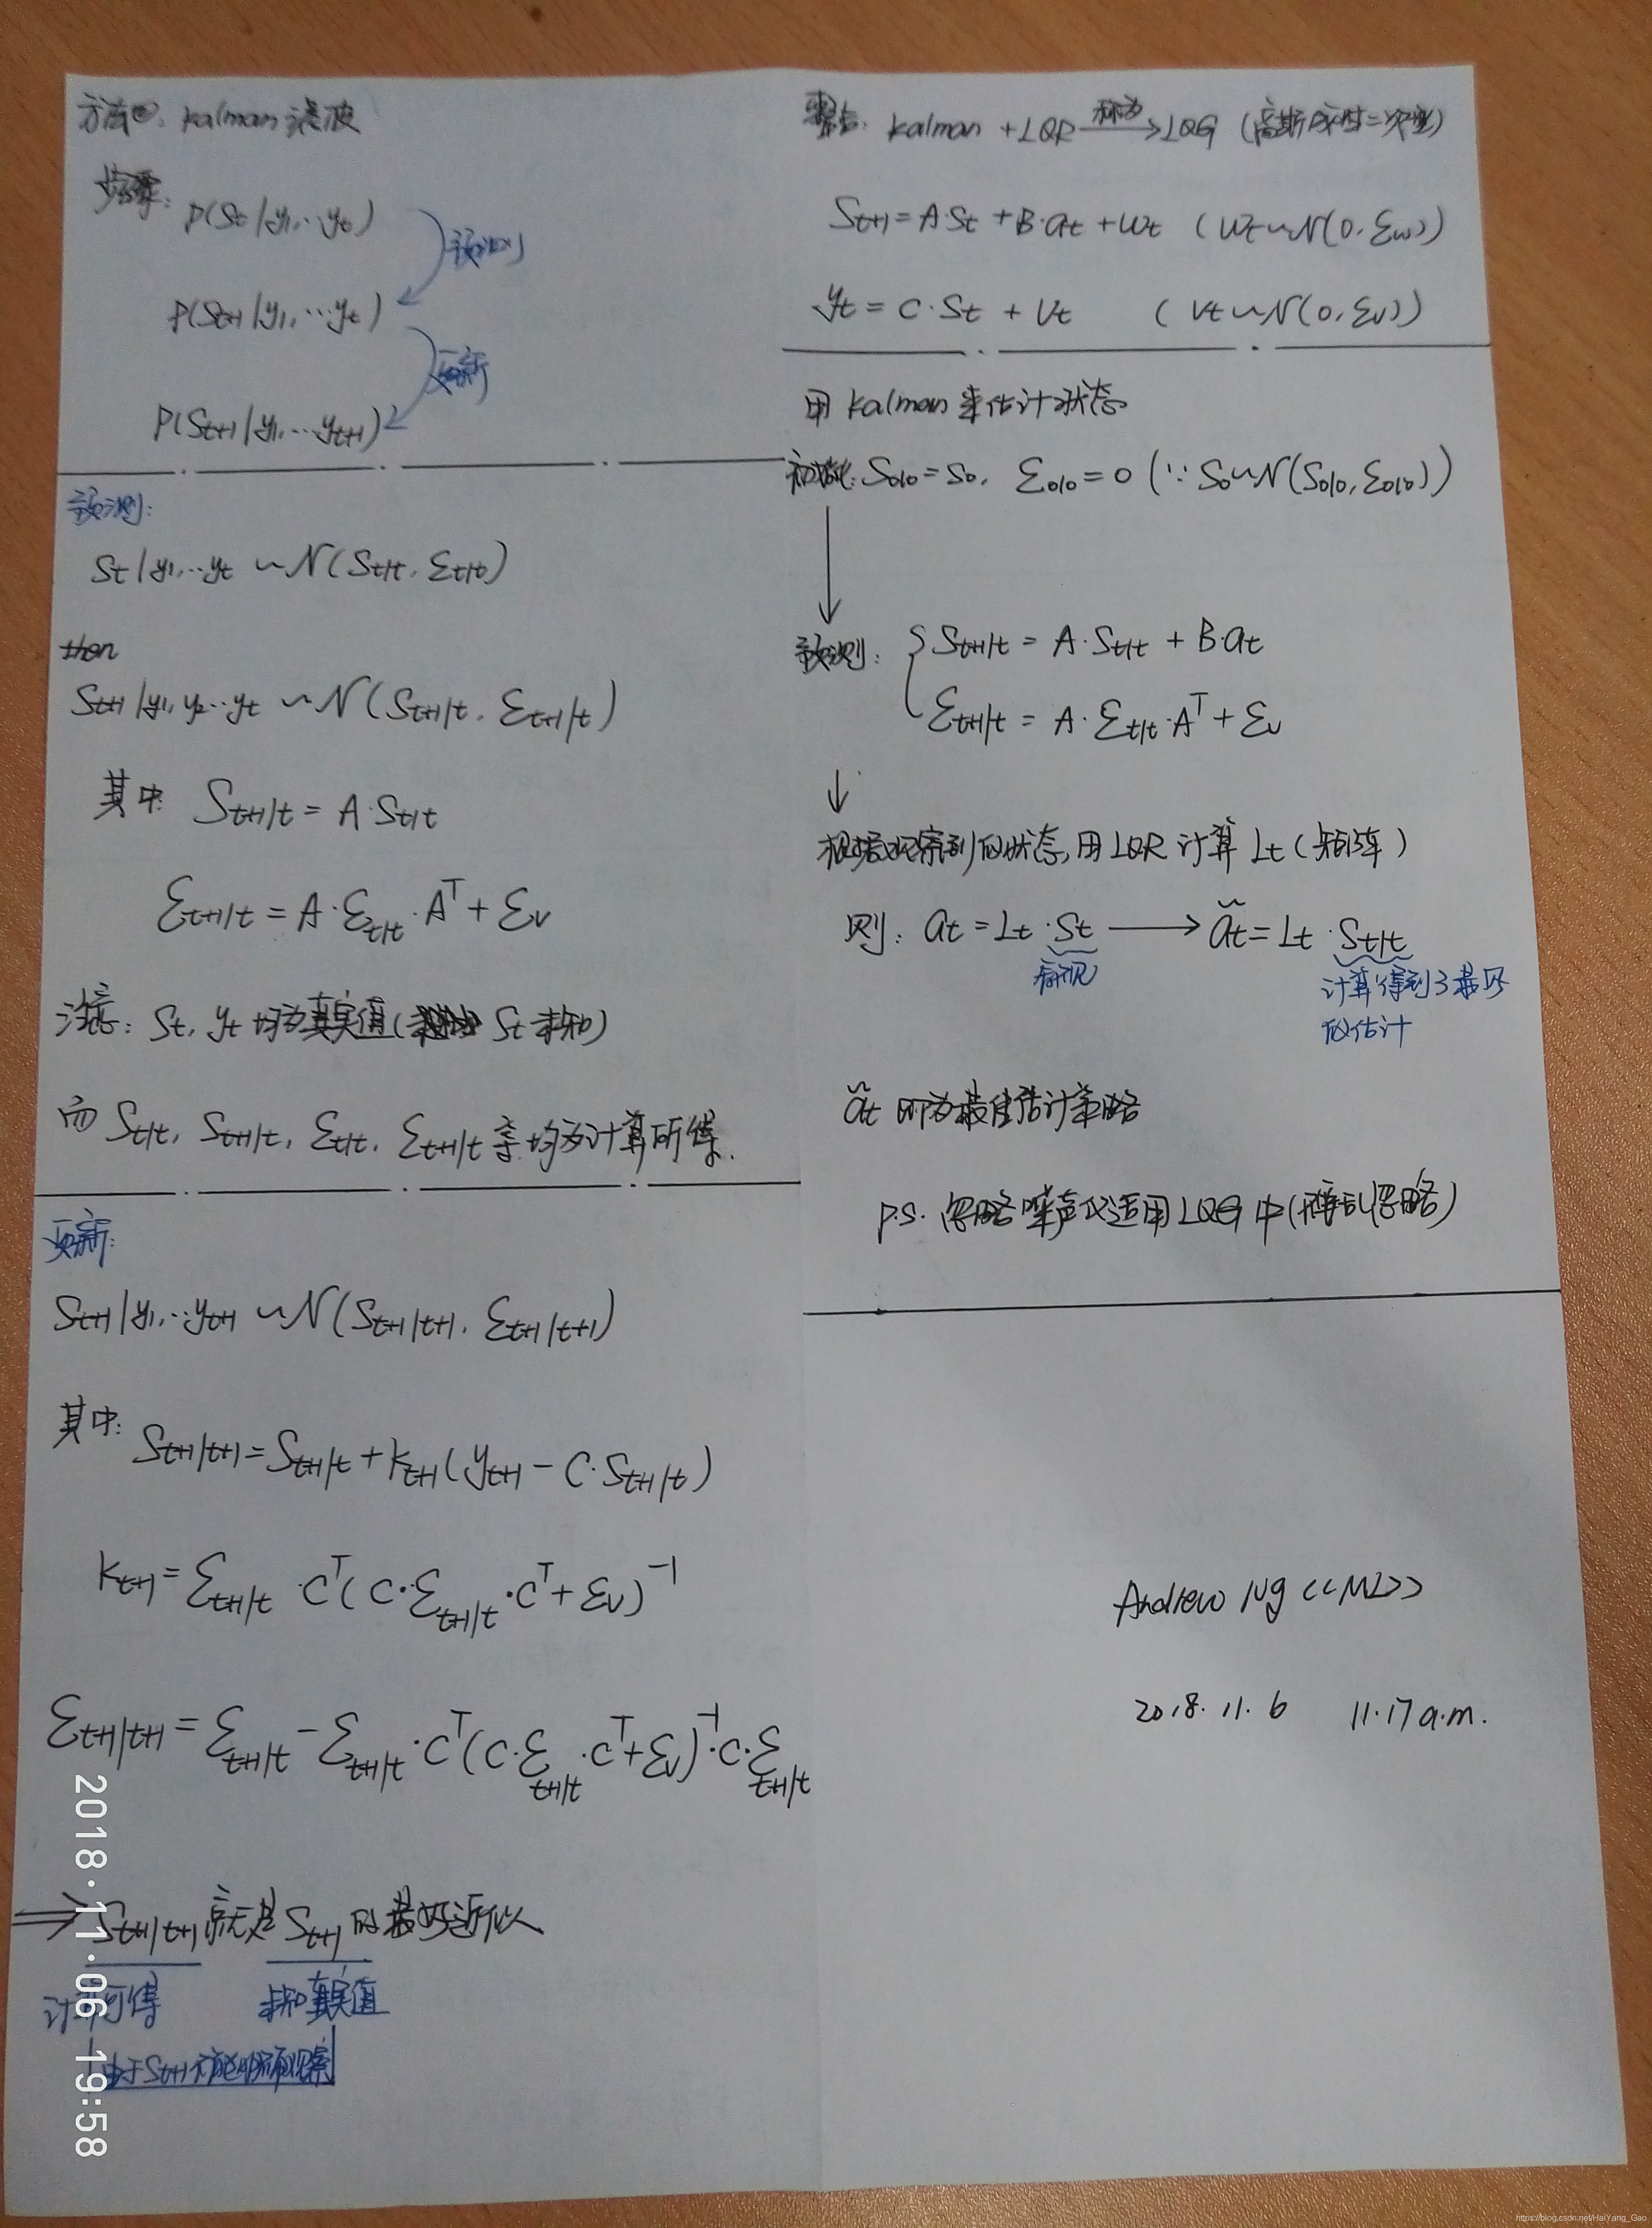 方法②: kalman 滤波
步骤: P(St|y1,…yt)
预测
P(St+1|y1,…yt)
更新
P(St+1|y1,…yt+1)
预测:
St|y1,…yt ~ N(St|t, Σt|t)
then
St+1|y1,y2…yt ~ N(St+1|t, Σt+1|t)
其中 St+1|t = A·St|t
Σt+1|t = A·Σt|t·A^T + Σv
注意: St, yt 均为真实值( St 未知)
而 St|t, St+1|t, Σt|t, Σt+1|t 等均为计算所得.
更新:
St+1|y1,…yt+1 ~ N(St+1|t+1, Σt+1|t+1)
其中: St+1|t+1 = St+1|t + Kt+1(yt+1 - C·St+1|t)
Kt+1 = Σt+1|t ·C^T(C·Σt+1|t·C^T + Σv)^-1
Σt+1|t+1 = Σt+1|t - Σt+1|t·C^T(C·Σt+1|t·C^T+Σv)^-1·C·Σt+1|t
⇒ St+1|t+1 就是 St+1 的最好近似
计算可得 未知真实值
由于St+1
kalman + LQR 称为→ LQG (高斯二次型)
St+1 = A·St + B·at + wt (wt~N(0, Σw))
yt = C·St + vt (vt~N(0, Σv))
用 kalman 来估计状态
初始化: S0|0 = S0, Σ0|0 = 0 (∵ S0~N(S0|0, Σ0|0))
↓
预测: { St+1|t = A·St|t + B·at
Σt+1|t = A·Σt|t·A^T + Σv
↓
根据观察到的状态, 用 LQR 计算 Lt (矩阵)
则: at = Lt·St → ãt = Lt·St|t
计算得到了最好
的估计
ãt 即为最佳估计策略
P.S. 忽略噪声仅适用 LQG 中(忽略)
Andrew Ng <<ML>>
2018.11.6 11.17 a.m.
2018·11·06 19:58
https://blog.csdn.net/HaiYang_Gao